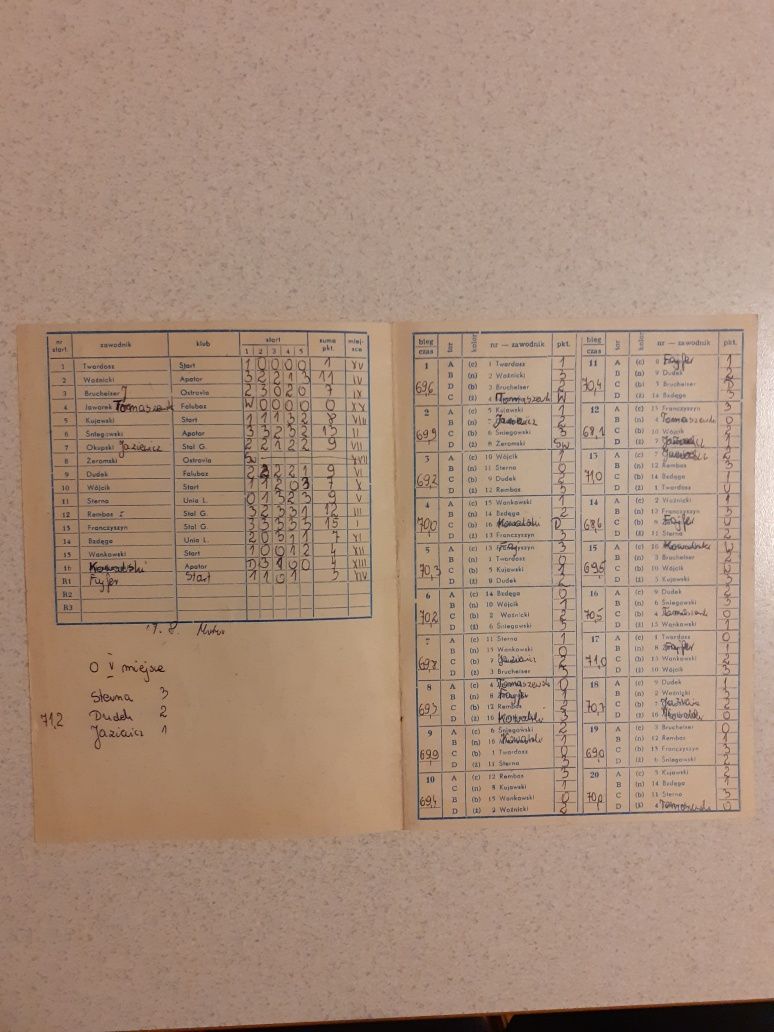 nr start. zawodnik klub start suma pkt. miejsce
1 2 3 4 5
1 Twardosz Start 1 0 0 0 0 1 XV
2 Woźnicki Apator 3 2 2 1 3 11 IV
3 Brucheiser Ostrovia 2 3 0 2 0 7 IX
4 Jaworek Tomaszewski Falubaz W 0 0 0 0 0 XV
5 Kujawski Start 1 1 1 3 2 8 VIII
6 Śniegowski Apator 3 3 2 3 2 13 II
7 Okupski Jaziewicz Stal G. 2 2 1 2 2 9 VII
8 Żeromski Ostrovia Su XVII
9 Dudek Falubaz 2 2 2 2 1 9 VI
10 Wójcik Start 1 1 2 0 3 7 X
11 Sterna Unia L. 0 1 3 2 3 9 V
12 Rembas Stal G. 3 2 3 3 1 12 III
13 Franczyszyn Stal G. 3 3 3 3 3 15 I
14 Bzdęga Unia L. 2 0 3 1 1 7 XI
15 Wankowski Start 1 0 0 1 2 4 XII
16 Kowalski Apator D 3 1 0 0 4 XIII
R1 Fajfer Start 1 1 0 1 3 XIV
R2
R3
O V miejsce
Sterna 3
71,2 Dudek 2
Jaziewicz 1
bieg czas tor kolor nr — zawodnik pkt.
1 A (c) 1 Twardosz 1
B (n) 2 Woźnicki 3
69,6 D (b) 3 Brucheiser 2
C (ż) 4 Tomaszewski W
2 A (c) 5 Kujawski 1
B (n) 7 Jaziewicz 2
69,9 C (b) 6 Śniegowski 3
D (ż) 8 Żeromski Su
3 A (c) 10 Wójcik 1
B (n) 11 Sterna 0
69,2 C (b) 9 Dudek 2
D (ż) 12 Rembas 3
4 A (c) 15 Wankowski 1
B (n) 14 Bzdęga 2
70,0 C (b) 16 Kowalski D
D (ż) 13 Franczyszyn 3
5 A (c) 13 Franczyszyn 3
B (n) 1 Twardosz 0
70,3 C (b) 5 Kujawski 1
D (ż) 9 Dudek 2
6 A (c) 14 Bzdęga 0
B (n) 10 Wójcik 1
70,2 C (b) 2 Woźnicki 2
D (ż) 6 Śniegowski 3
7 A (c) 11 Sterna 1
B (n) 15 Wankowski 0
C (b) 7 Jaziewicz 2
D (ż) 3 Brucheiser 3
8 A (c) 4 Tomaszewski 0
B (n) 8 Fajfer 1
69,3 C (b) 12 Rembas 2
D (ż) 16 Kowalski 3
9 A (c) 6 Śniegowski 2
B (n) 16 Kowalski 1
69,9 C (b) 1 Twardosz 0
D (ż) 11 Sterna 3
10 A (c) 12 Rembas 3
C (n) 5 Kujawski 1
69,4 B (b) 15 Wankowski 0
D (ż) 2 Woźnicki 2
bieg czas tor kolor nr — zawodnik pkt.
11 A (c) 8 Fajfer 1
B (n) 9 Dudek 2
70,4 C (b) 3 Brucheiser
D (ż) 14 Bzdęga 3
12 A (c) 13 Franczyszyn 3
B (n) 4 Tomaszewski 0
68,1 C (b) 10 Wójcik
D (ż) 7 Jaziewicz 1
13 A (c) 7 Jaziewicz 2
B (n) 12 Rembas 3
71,0 C (b) 14 Bzdęga 1
D (ż) 1 Twardosz 0
14 A (c) 2 Woźnicki 1
B (n) 13 Franczyszyn 3
68,6 C (b) 8 Fajfer 0
D (ż) 11 Sterna 2
15 A (c) 16 Kowalski
B (n) 3 Brucheiser 2
C (b) 10 Wójcik
D (ż) 5 Kujawski 3
16 A (c) 9 Dudek 2
B (n) 6 Śniegowski 3
70,5 C (b) 4 Tomaszewski 0
D (ż) 15 Wankowski 1
17 A (c) 1 Twardosz 0
B (n) 8 Fajfer 1
71,0 C (b) 15 Wankowski 2
D (ż) 10 Wójcik 3
18 A (c) 9 Dudek 1
B (n) 2 Woźnicki 3
C (b) 7 Jaziewicz 2
D (ż) 16 Kowalski 0
19 A (c) 3 Brucheiser 0
B (n) 12 Rembas 1
69,0 C (b) 13 Franczyszyn 3
D (ż) 6 Śniegowski 2
20 A (c) 5 Kujawski 2
B (n) 14 Bzdęga 1
C (b) 11 Sterna 3
D (ż) 4 Tomaszewski 0